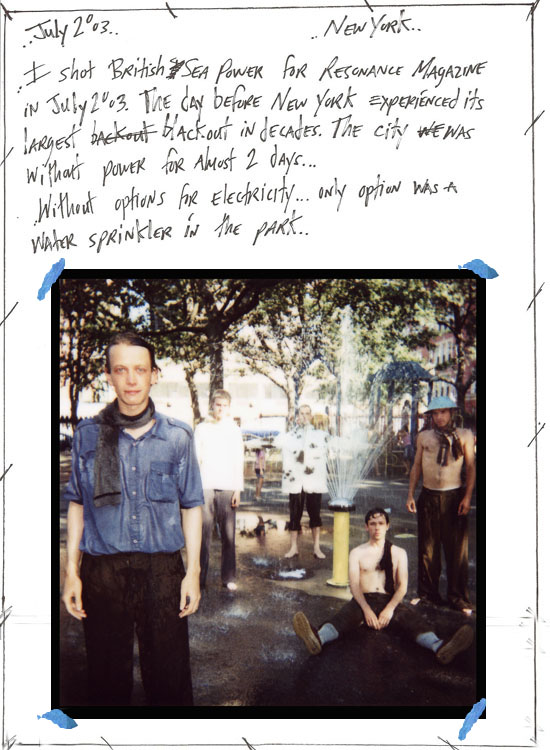 July 2003.. New York..
I shot British Sea Power for Resonance Magazine
in July 2003. The day before New York experienced its
largest backout blackout in decades. The city we was
without power for almost 2 days...
Without options for electricity... only option was a
water sprinkler in the park..